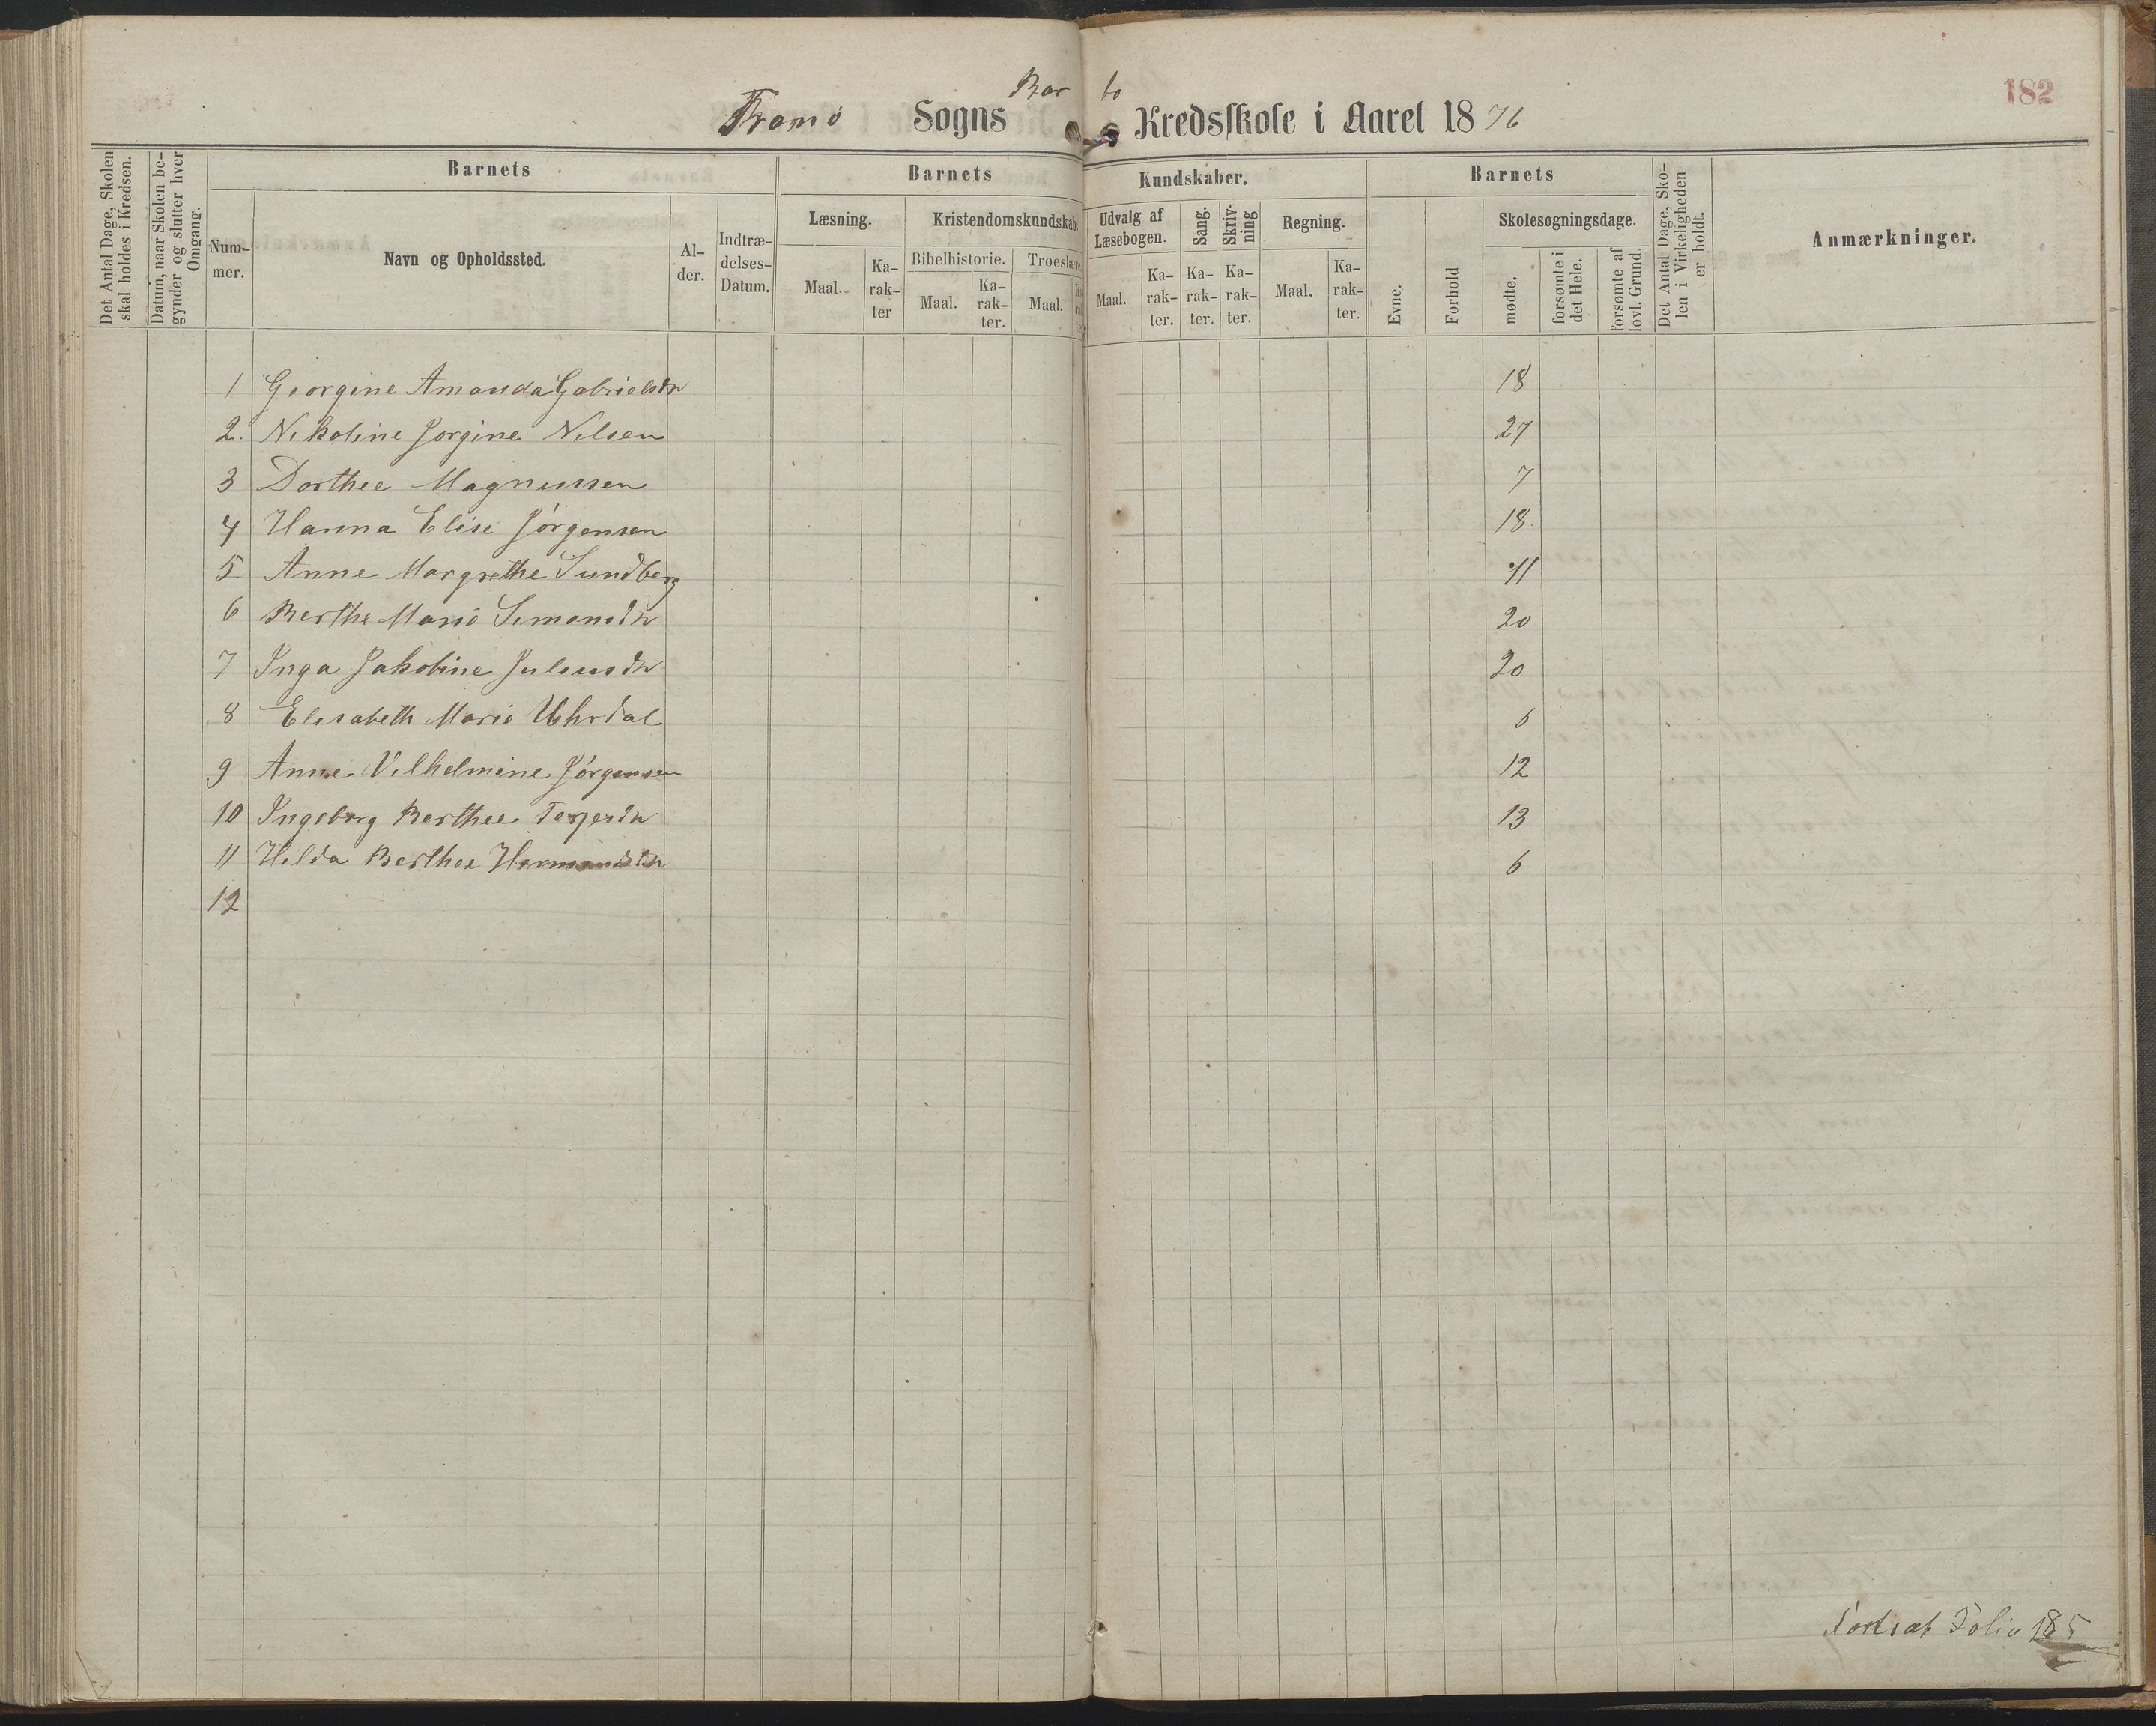 182
Tromø Sogns Bar bo Kredsskole i Aaret 1876
Det Antal Dage, Skolen skal holdes i Kredsen.
Datum, naar Skolen begynder og slutter hver Omgang.
Barnets
Num-
mer.
Navn og Opholdssted.
Al-
der.
Indtræ-
delses-
Datum.
Barnets Kundskaber.
Læsning.
Maal.
Ka-
rak-
ter
Kristendomskundskab.
Bibelhistorie.
Maal.
Ka-
rak-
ter.
Troeslære
Maal.
Udvalg af
Læsebogen.
Maal.
Ka-
rak-
ter.
Sang.
Ka-
rak-
ter.
Skriv-
ning
Ka-
rak-
ter.
Regning.
Maal.
Ka-
rak-
ter.
Barnets
Evne.
Forhold
Skolesøgningsdage.
mødte.
forsømte i
det Hele.
forsømte af
lovl. Grund.
Det Antal Dage, Sko-
len i Virkeligheden
er holdt.
Anmærkninger.
1 Georgine Amanda Gabrielsdtr 18
2. Nikoline Jorgine Nilsen 27
3 Dorthee Magnussen 7
4 Hanna Elise Jørgensen 18
5. Anne Margrethe Sundberg 11
6 Berthe Marie Simonsdtr 20
7 Inga Jakobine Juliusdtr 20
8 Elisabeth Marie Uhrdal 6
9 Anne Vilhelmine Jørgensen 12
10 Ingeborg Berthee Terjesdtr 13
11 Hilda Berthee 6
12
Fortsat Folio 185